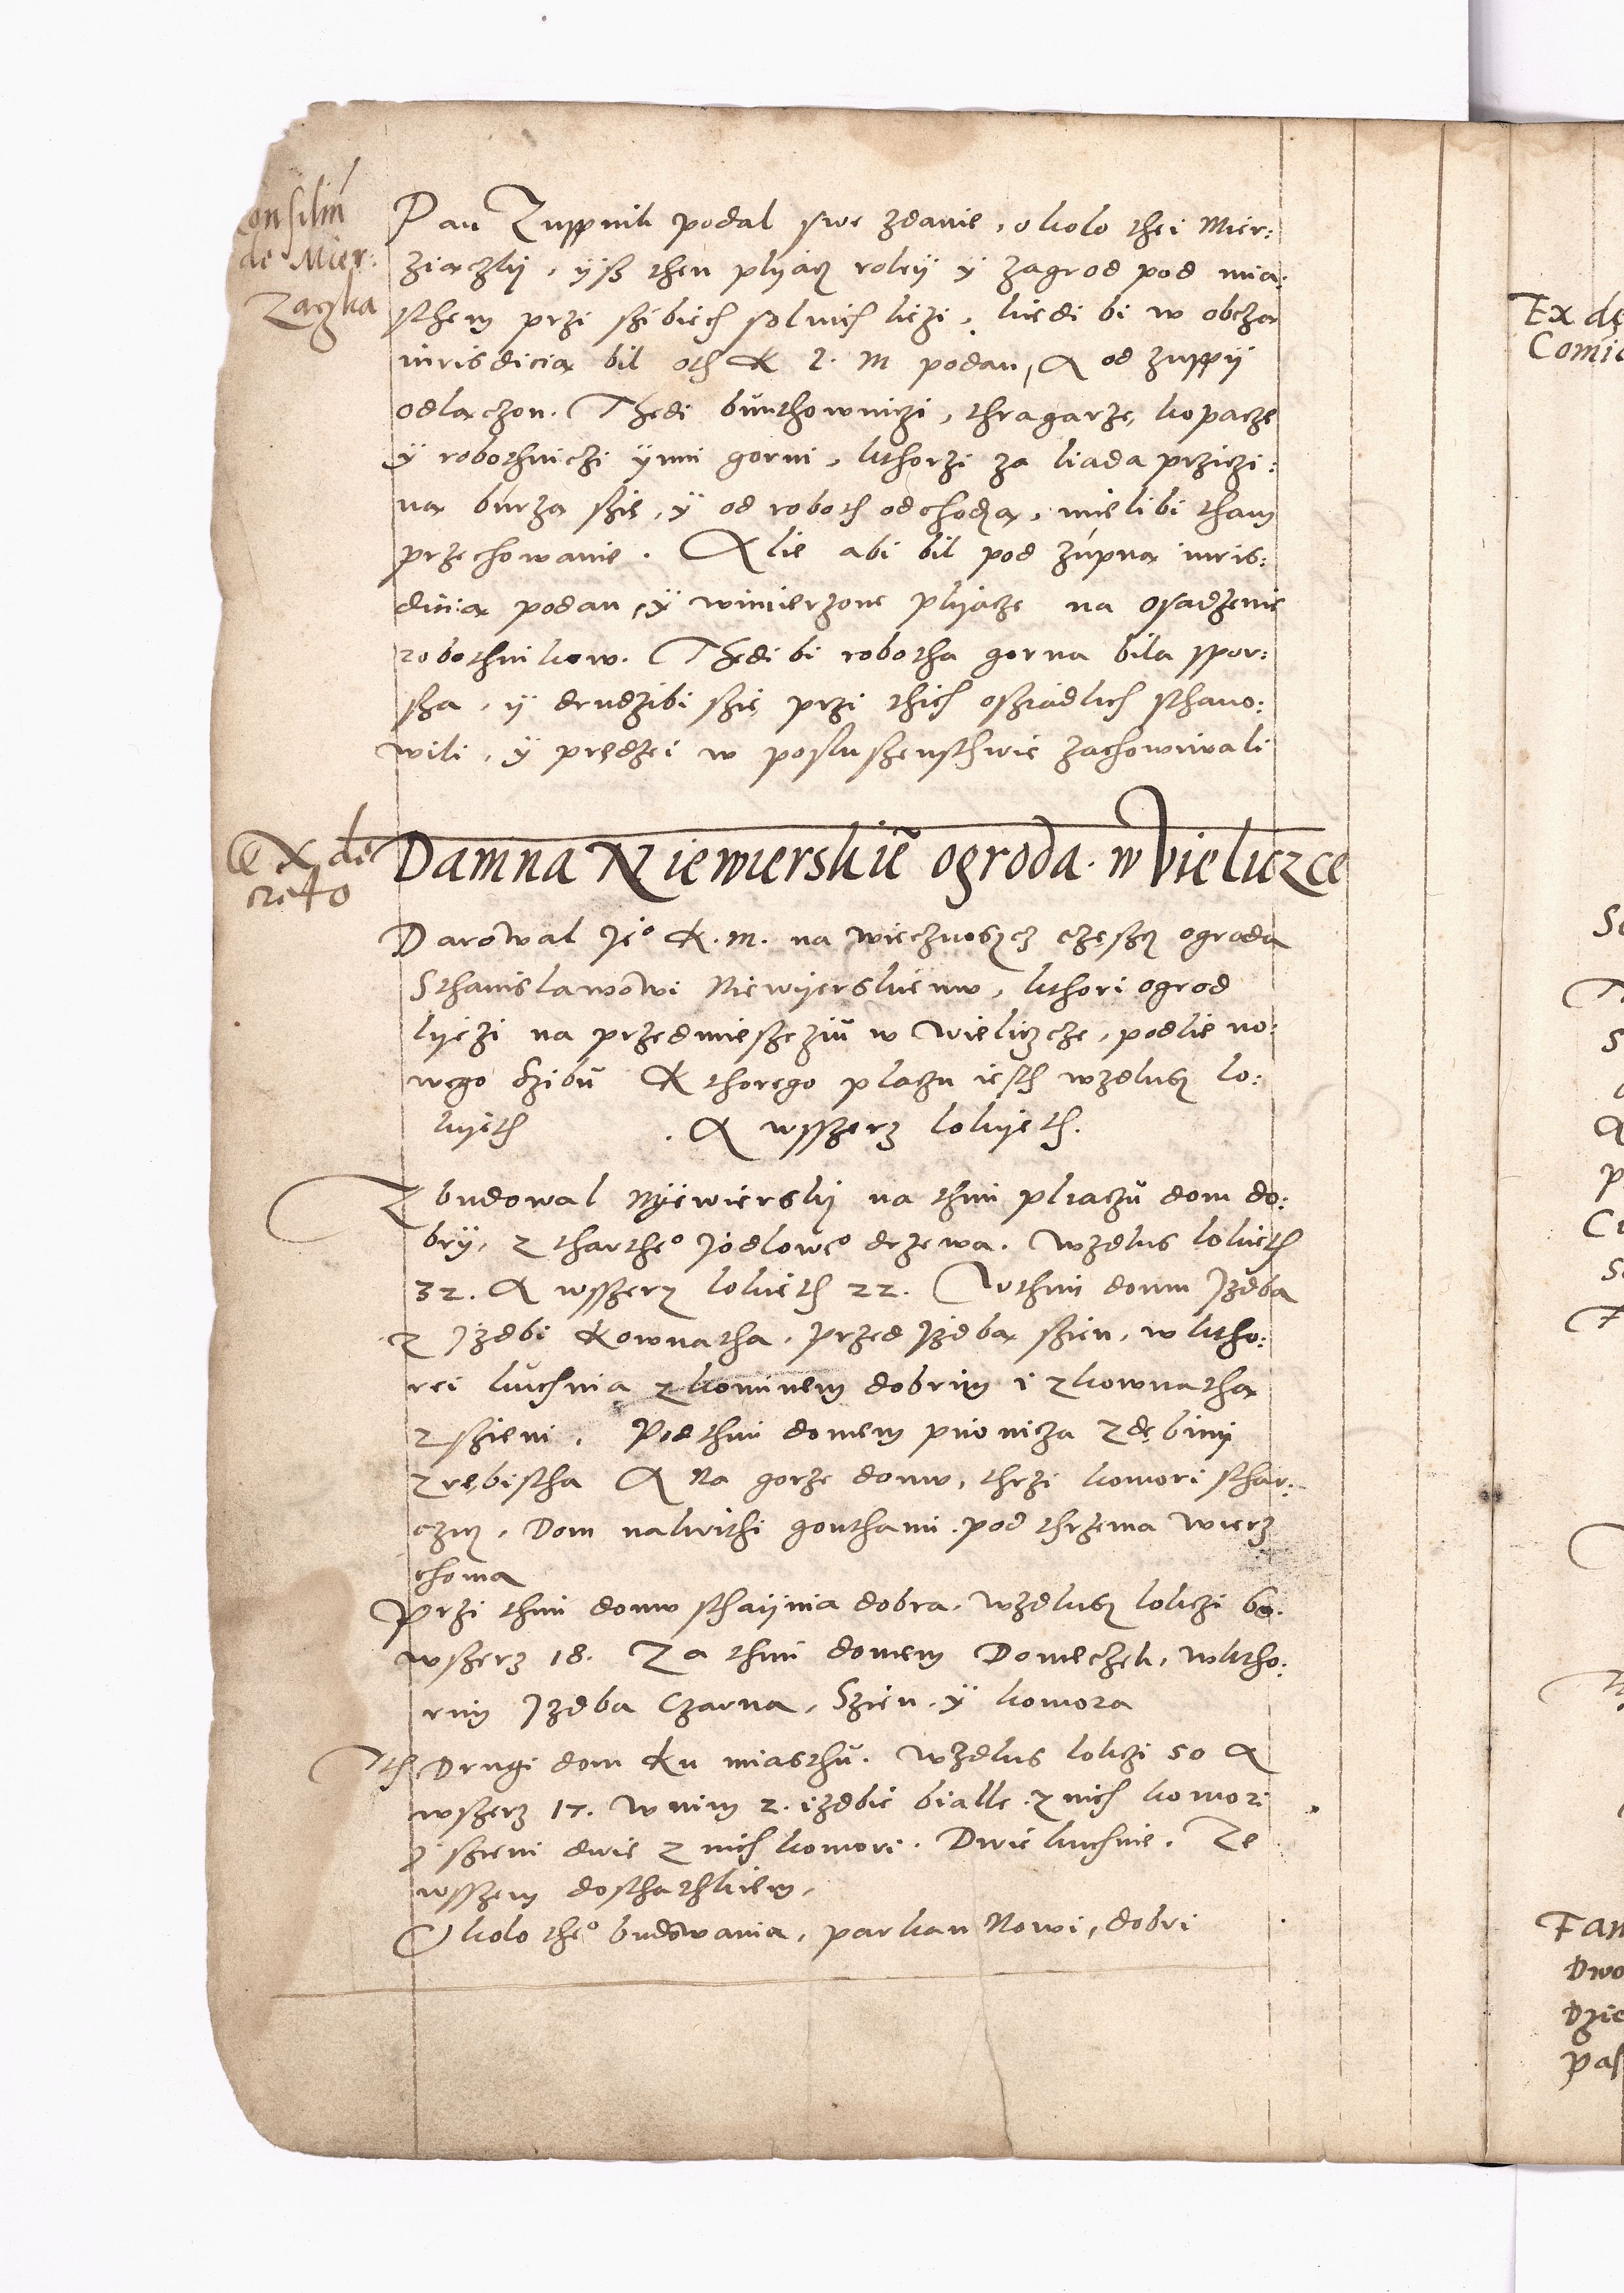 onsiliu
de Mier:
Zaczka
Pan Zuppnik podal swe zdanie, okolo thei Mier:
ziaczky, yß then plyacz roley ÿ zagrod pod mia:
sthem przi szibiech solnich liezi, kiedi bi w obcza
iurisdicia bil oth K J. M podan, A od zuppÿ
odlaczon. Thedi bunthowniczi, thragarze, kopacze
ÿ robothniczi ynni gorni, kthorzi za liada przizi:
na burza szie, ÿ od roboth odchodza, mielibi tham
przechowanie. Alie abi bil pod zupna iuris:
dicia podan, ÿ wimierzone plyacze na osadzenie
robothnikow. Thedi bi robotha gorna bila spor:
sza, ÿ drudzibi szie przi thich osziadlich sthano:
wili, ÿ prędzei w posluszensthwie zachowiwali
Ex de
creto
Damna Niewierskie ogroda. w Vieliczce
Darowal Jeo K. M. na wiecznoscz czescz ogroda
Sthanislawowi Niewyerskiemu, kthori ogrod
lyezi na przedmiesczziu w Wieliczcze, podlie no:
wego Szibu Kthorego placzu iesth wzdlusz lo:
kyeth . A wsszerz lokyeth.
Zbudowal Nyewiersky na thim pliaczu dom do:
brÿ, z thartheo Jodloweo drzewa. Wzdlus lokieth
32. A wsszerz lokieth 22. Wthim domu Jzdba
z Jzdbi Kownatha, przed Jzdba szien, w ktho:
rei kuchnia z kominem dobrim i z kownatha
z szieni. Pod thim domem piwnicza z dębiny
z rębistha A Na gorze domu, thrzi komori sthar:
czicz, Dom nakrithi gonthami. pod thrzema wierz
choma
Przi thim domu sthaÿnia dobra, wzdlusz lokczi 60.
wszerz 18. Za thim domem Domeczek, wktho:
rim Jzdba Czarna, Szien, ÿ komora
Ith Drugi dom Ku miasthu. Wzdlus lokczi 50 A
wszerz 17. W nim 2. izdbie bialle. z nich komori
z szieni dwie z nich komori. Dwie kuchnie. Ze
wsszem dosthathkiem,
Okolo theo budowania, parkan Nowi, dobri
Ex de
Comi